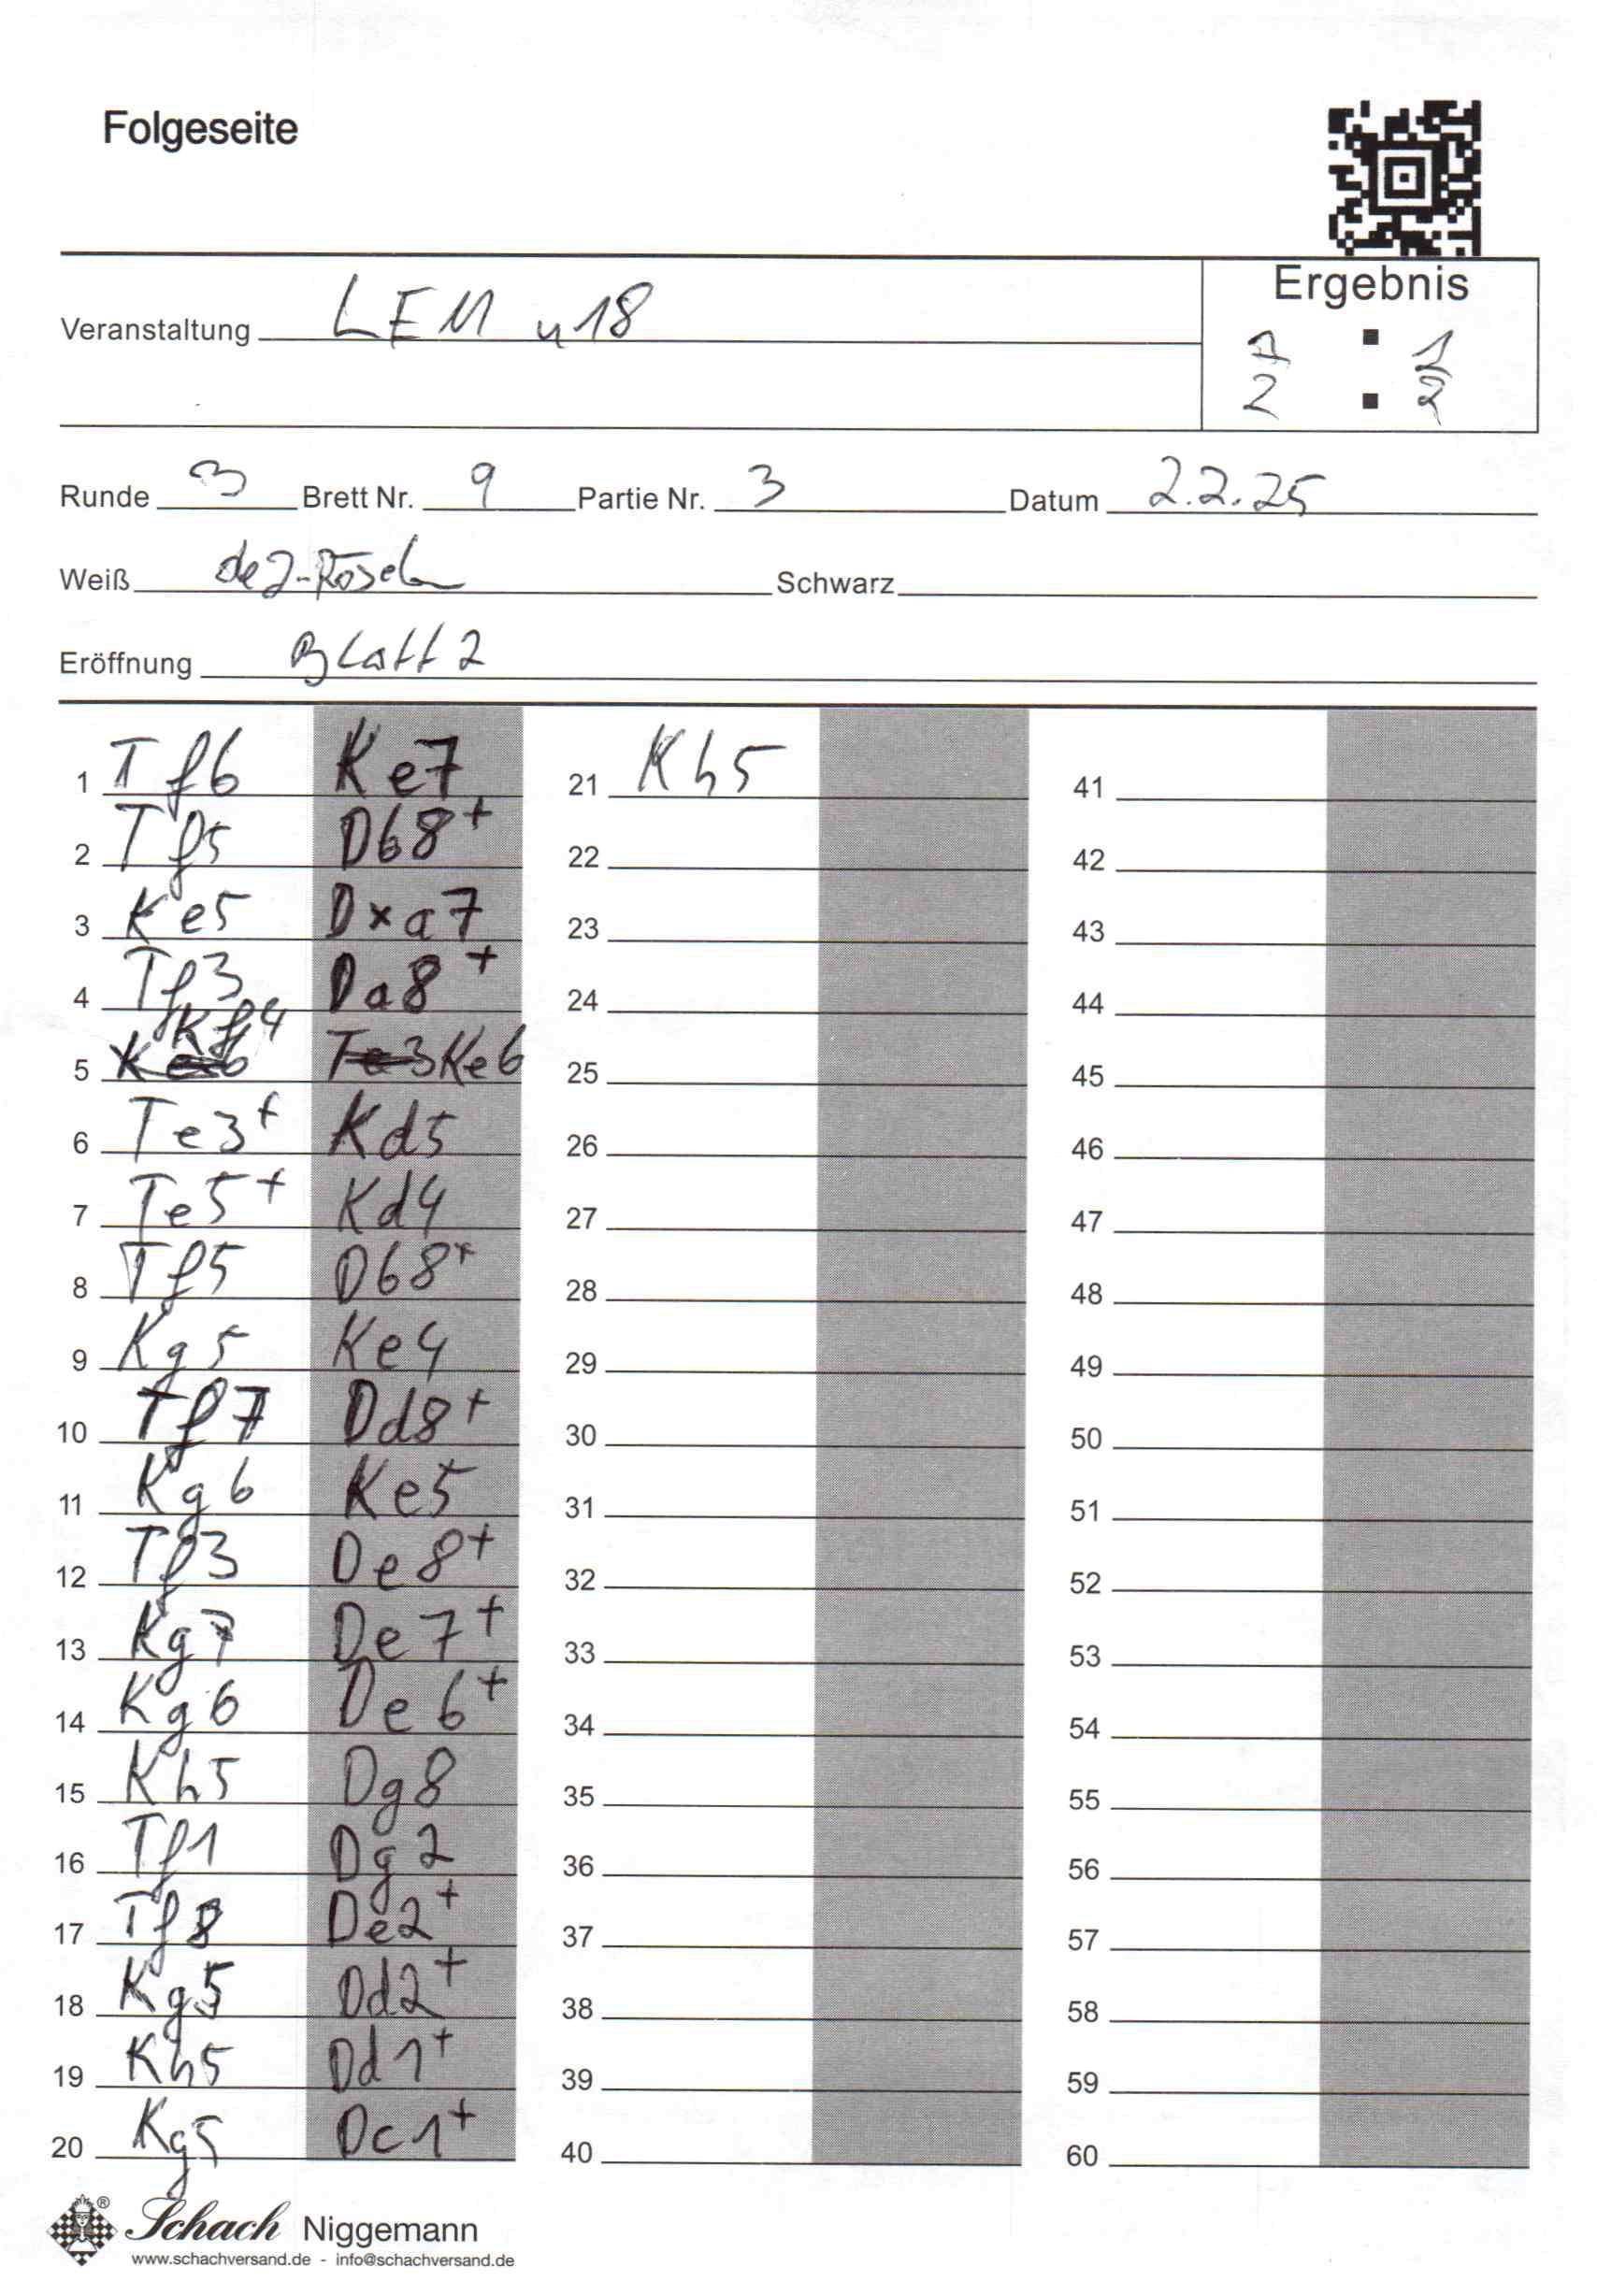 Folgeseite
Ergebnis
Veranstaltung LEM u18
1/2 : 1/2
Runde 3 Brett Nr. 9 Partie Nr. 3 Datum 2.2.25
Weiß Schwarz
Eröffnung Blatt 2
1 Tf6 Ke7
2 Tf5 Db8+
3 Ke5 Dxa7
4 Tf3 Da8+
5 Kf4 Ke6
6 Te3+ Kd5
7 Te5+ Kd4
8 Tf5 Db8+
9 Kg5 Ke4
10 Tf7 Dd8+
11 Kg6 Ke5
12 Tf3 De8+
13 Kg7 De7+
14 Kg6 De6+
15 Kh5 Dg8
16 Tf1 Dg2
17 Tf8 De2+
18 Kg5 Dd2+
19 Kh5 Dd1+
20 Kg5 Dc1+
21 Kh5
22
23
24
25
26
27
28
29
30
31
32
33
34
35
36
37
38
39
40
41
42
43
44
45
46
47
48
49
50
51
52
53
54
55
56
57
58
59
60
® Schach Niggemann
www.schachversand.de - info@schachversand.de